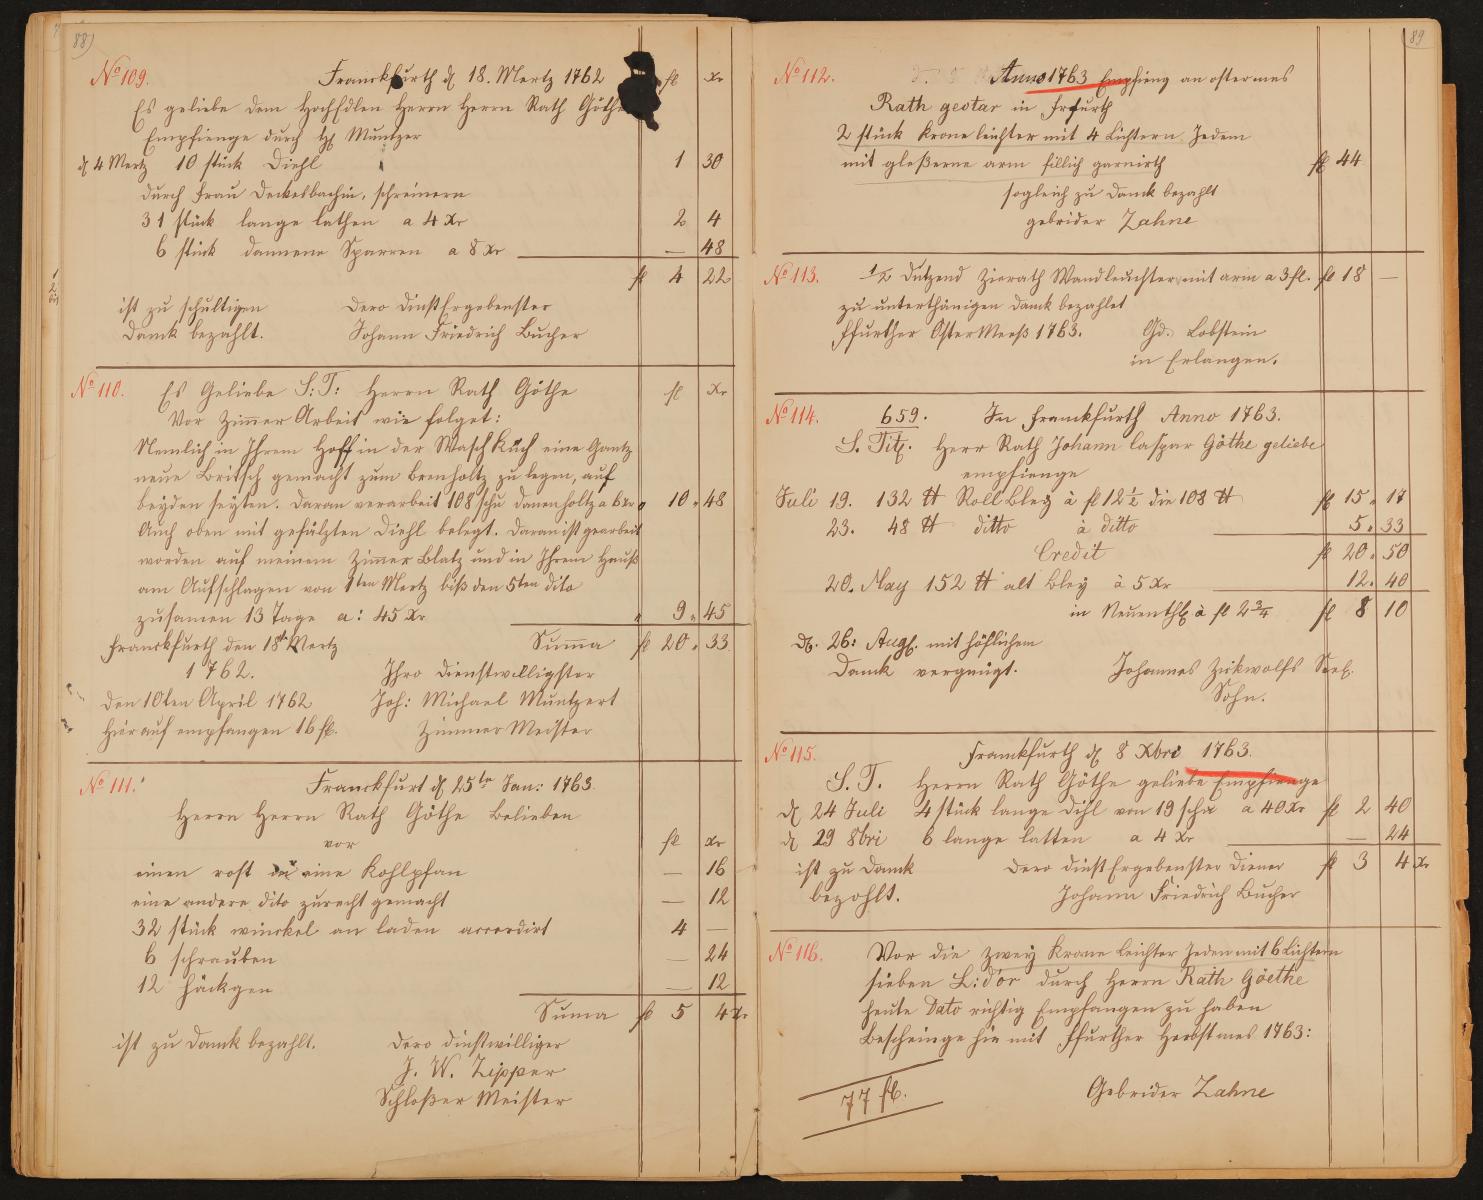 88)
No 109.
Franckfurth d 18. Mertz 1762 fl xr
Es geliebe dem HochEdlen Herrn Herrn Rath Göthe
Empfienge durch H Müntzer
d 4 Mertz 10 stück Diehl 1 30
durch Frau Deckelbachin, schreinern
31 stück lange lathen a 4 xr 2 4
6 stück dannene Sparren a 8 xr — 48
fl 4 22
ist zu schultigen Dero dinstErgebenster
Danck bezahlt. Johann Friedrich Bucher
No 110. Es Geliebe S: T: Herrn Rath Göthe fl xr
Vor Zimer Arbeit wie folget:
Nemlich in Ihrem Hoff in der Wasch Kuch eine Gantz
neue Britsch gemacht zum Brenholtz zu legen, auf
beyden seyten. Daran verarbeit 108 schu danenholtz a 6 xr 10 48
Auch oben mit gefältzten Diehl belegt. Daran ist gearbeit
worden auf meinem Zimer Blatz und in Ihrem Hauß
am Aufschlagen von 1ten Mertz biß den 5ten dito
zusamen 13 Tage a: 45 xr 9 45
Franckfurth den 18t Mertz Suma fl 20 33
1762. Ihro dienstwilligster
den 10ten April 1762 Joh: Michael Müntzert
hierauf empfangen 16 fl. Zimmer Meister
No 111. Franckfurt d 25te Jan: 1763
Herrn Herrn Rath Göthe Belieben
vor fl xr
einen rost in eine Kohlpfan — 16
eine andere dito zurecht gemacht — 12
32 stück winckel an laden accordirt 4 —
6 schrauben — 24
12 häckgen — 12
Suma fl 5 4 xr
ist zu Danck bezahlt. Dero dinstwilliger
J. W. Zipper
Schloßer Meister
89
No 112. Anno 1763 Empfieng an ostermes
Rath geotar in frfurth
2 stück Krone leichter mit 4 Lichtern Jedem
mit gleßerne arm fillich garnirth fl 44
sogleich zu Danck bezahlt
gebrider Zahne
No 113. 1/2 Dutzend Zierath Wandleuchter mit arm a 3 fl. fl 18 —
zu unterthänigen Danck bezahlet
ffurther OsterMeeß 1763. Gd. Lobstein
in Erlangen.
No 114. 659. In Franckfurth Anno 1763.
S. Titl. Herr Rath Johann Caspar Göthe geliebe
empfienge
Juli 19. 132 ℔ RollBley à fl 12 1/2 die 108 ℔ fl 15 17
23. 48 ℔ ditto à ditto 5 33
Credit fl 20 50
20. May 152 ℔ alt Bley à 5 xr 12 40
in Neuenthl à fl 2 3/4 fl 8 10
D. 26: Augl. mit höflichem
Danck vergnügt. Johannes Zirkwolfs Seel.
Sohn.
No 115. Franckfurth d 8 Xbri 1763.
S. T. Herrn Rath Göthe geliebe Empfienge
d 24 Juli 4 stück lange Dihl von 19 schu a 40 xr fl 2 40
d 29 8bri 6 lange latten a 4 xr — 24
ist zu Danck Dero dinstErgebenster Diener fl 3 4 xr
bezahlt. Johann Friedrich Bucher
No 116. Vor die zwey Krone leichter Jeden mit 6 Lichtern
sieben L: dor durch Herrn Rath Göethe
heute Dato richtig Empfangen zu haben
Bescheinge hiemit ffurther Herbstmes 1763:
77 fl. Gebrider Zahne